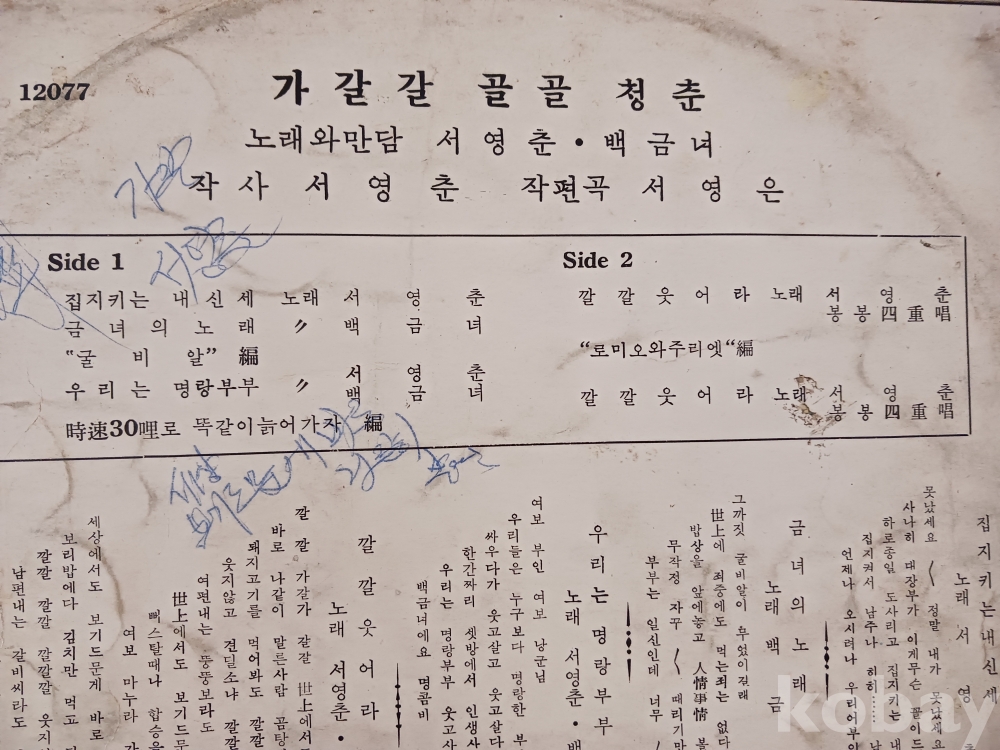 12077
가갈갈 골골 청춘
노래와만담 서영춘·백금녀
작사 서영춘 작편곡 서영은
Side 1
집지키는 내신세 노래 서영춘
금녀의 노래 〃 백금녀
“굴비알” 編
우리는 명랑부부 〃 서영춘 백금녀
時速30哩로 똑같이늙어가자 編
Side 2
깔깔웃어라 노래 서영춘
봉봉四重唱
“로미오와주리엣“編
깔깔웃어라 노래 서영춘
봉봉四重唱
집지키는내신세
노래 서영
못났세요 정말 내가 못났세요
사나히 대장부가 이게무슨 꼴이드
하로종일 도사리고 집지키는
집지켜서 남주나 히히……
언제나 오시려나 우리어부인
금녀의노래
노래 백금
그까짓 굴비알이 후었이길래
世上에 죄중에도 먹는죄는 없다
밥상을 앞에놓고 人情事情
무작정 자꾸 때리기만
부부는 일신인데 너무
우리는명랑부부
노래 서영춘·백
여보 부인 여보 낭군님
우리들은 누구보다 명랑한 부
싸우다가 웃고살고 웃고살다
한간짜리 셋방에서 인생사
우리는 명랑부부 웃고사
백금녀에요 명콤비
깔깔웃어라
노래 서영춘·
깔깔 가갈가 갈갈 世上에서
바로 나같이 말른사람 곰탕
돼지고기를 먹어봐도 깔깔
웃지않고 견딜소냐 깔깔
여편내는 뚱뚱보라도
世上에서도 보기드문
삐스탈때나 합승을
여보 마누라
세상에서도 보기드문게 바로
보리밥에다 김치만 먹고
깔깔 깔깔 깔깔깔 웃지
남편내는 갈비씨라도
kobay